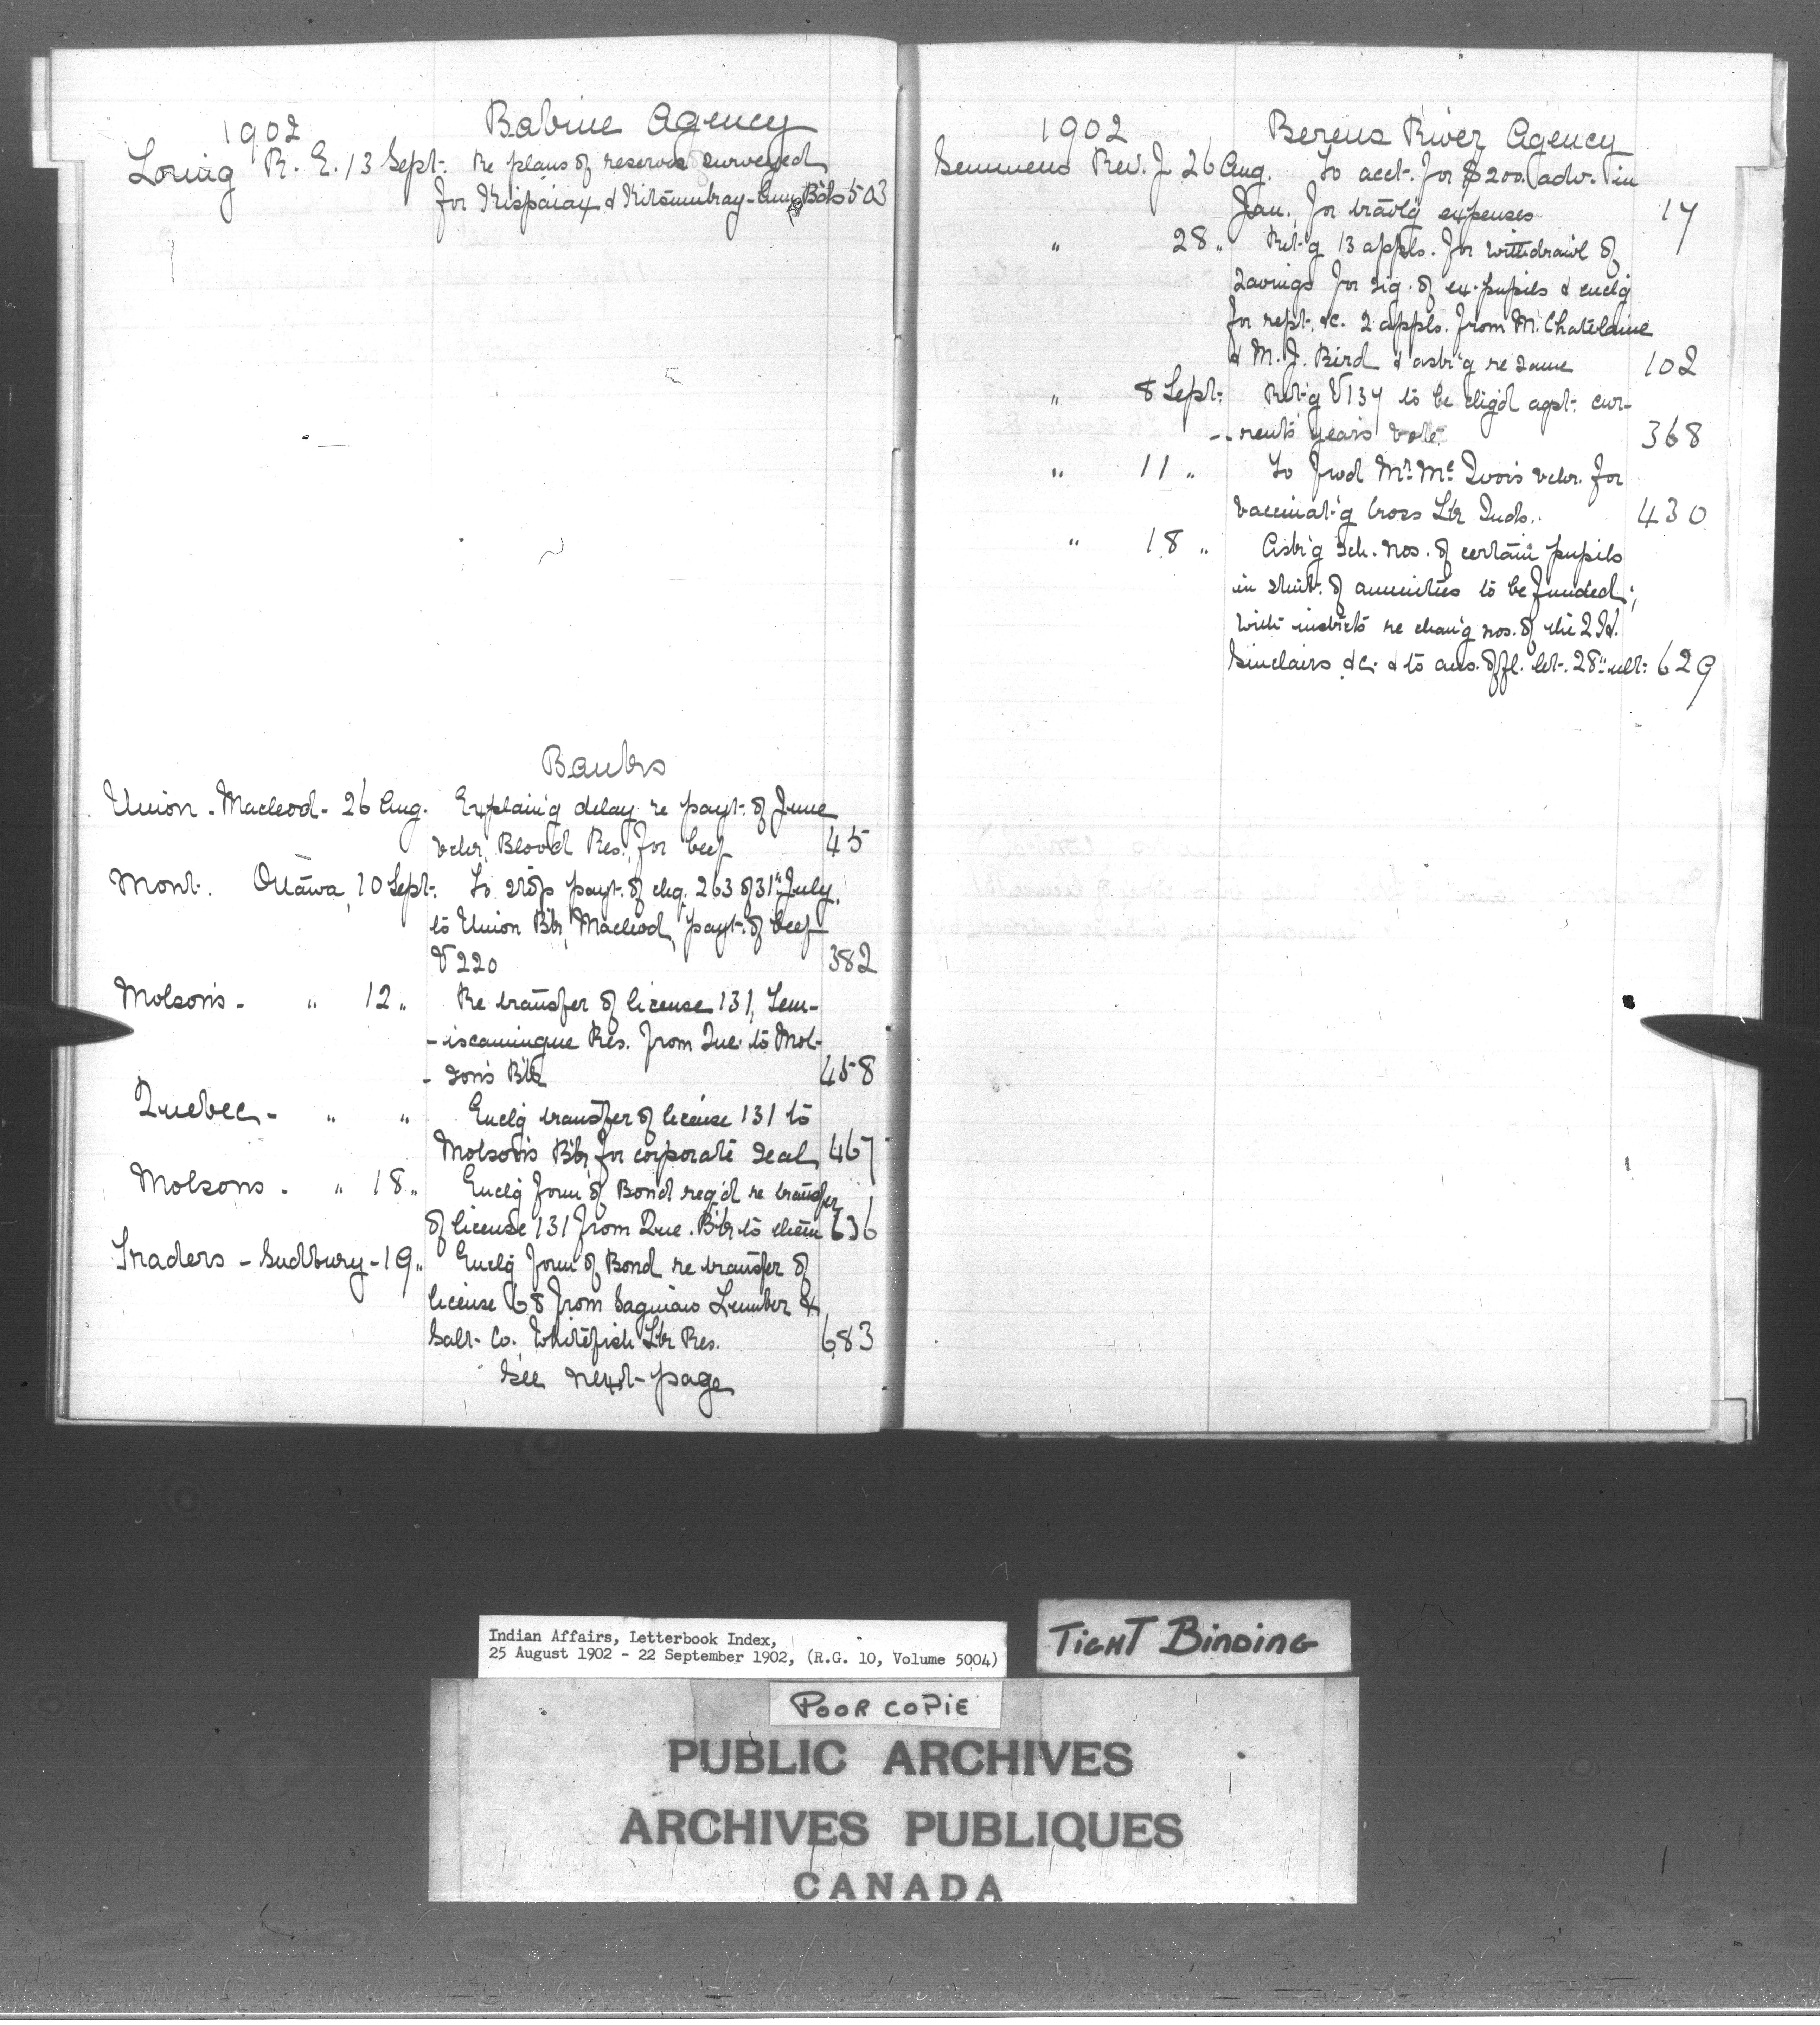 1902 Babine Agency
Loring R. E. 13 Sept. Re plans of reserves surveyed
for Kispaiax & Bds 503
Banks
Union - Macleod - 26 Aug. Explain'g delay re payt. of June
vchr. Blood Res. for beef 45
Mont. Ottawa, 10 Sept. To stop payt. of chq. 263 of 31st July
to Union B'k, Macleod, payt. of beef
V 220 382
Molson's - " 12 " Re transfer of license 131, Tem-
-iscamingue Res. from Que. to Mol-
-son's B'k 458
Quebec - " " Enclg transfer of license 131 to
Molson's B'k for corporate seal 467
Molsons - " 18 " Enclg form of Bond req'd re transfer
of license 131 from Que. B'k to them 636
Traders - Sudbury - 19 " Enclg form of Bond re transfer of
license 68 from Saginaw Lumber &
Salt Co. Whitefish Lk Res. 683
See next page
1902 Berens River Agency
Semmens Rev. J. 26 Aug. To acct. for $200. adv. in
Jan. for travl'g expenses 17
" 28 " Ret'g 13 appls. for withdrawl of
savings for sig. of ex-pupils & enclg
for rept. &c. 2 appls. from M. Chatelaine
& M. J. Bird & ask'g re same 102
" 8 Sept. Ret'g V 137 to be agst. cur-
-rent years vote 368
" 11 " To frwd Mr. vchr. for
vaccinat'g Cross Lk Inds. 430
" 18 " Ask'g sch. nos. of certain pupils
in stmt. of annuities to be funded;
with instrcts re chang'g nos. of the 2
Sinclairs &c. & to ans. offl. let. 28th ult. 629
Indian Affairs, Letterbook Index,
25 August 1902 - 22 September 1902, (R.G. 10, Volume 5004)
TIGHT BINDING
POOR COPIE
PUBLIC ARCHIVES
ARCHIVES PUBLIQUES
CANADA